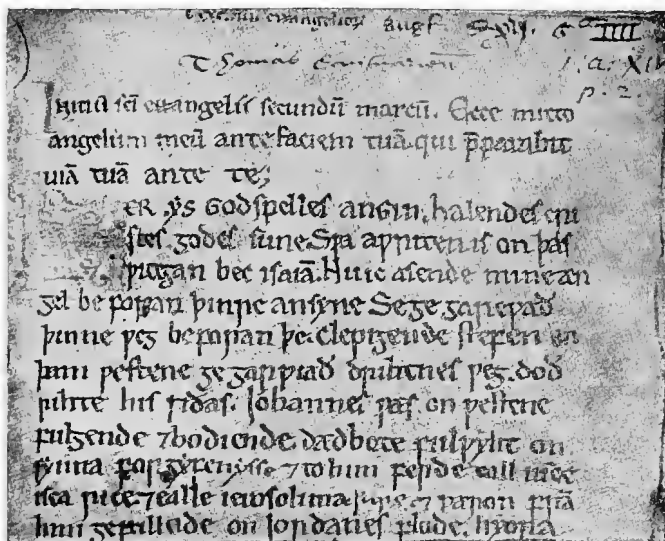 Thomas Cantuarien
1. A. XIV
p. 2.
Initiū sc̄i euuangelii secundū marcū. Ecce mitto
angelum meū ante faciem tuā. qui p̄parabit
uiā tuā ante te;
ER ys Godspelles angin. halendes cri
stes godes sune. Sƿa aƿriten is on þas
ƿitegan bec isaiā. Nu ic asende mine æn
gel beforan þinne ansyne Se ge gareƿað
þinne ƿeg beforan þe. clepigende stefen on
þam ƿestene ge garƿiað drihtnes ƿeg. doð
rihte his siðas. Iohannes ƿas on ƿestene
fulgende ⁊ bodiende dædbote fulƿyht on
synna forgyfenysse ⁊ to him ferde eall iude
isca rice ⁊ ealle ierosolima ƿare ⁊ ƿaron frā
him gefullede on iordanes flode. hyora